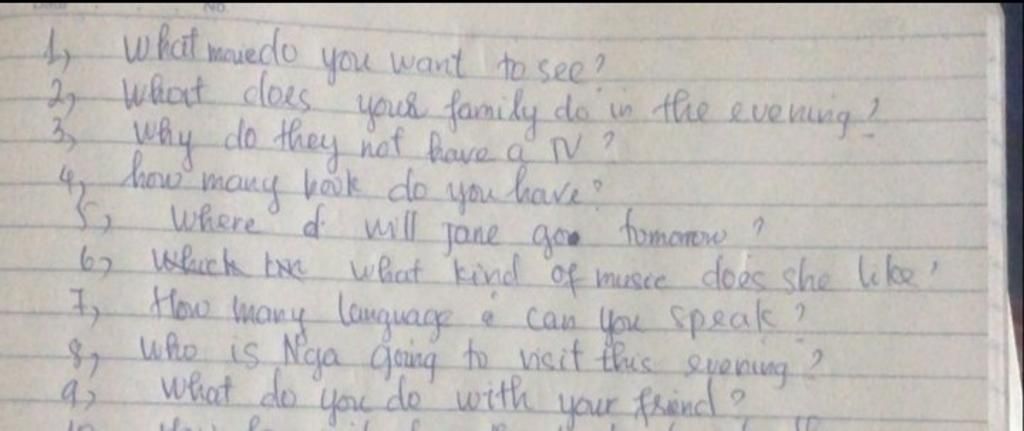 No.
1, What movedo you want to see?
2, What does your family do in the evening?
3, Why do they not have a TV?
4, how many book do you have?
5, Where will Jane go tomorrow?
6, What kind of musce does she like?
7, How many language can you speak?
8, Who is Nga going to visit this evening?
9, What do you do with your friend?